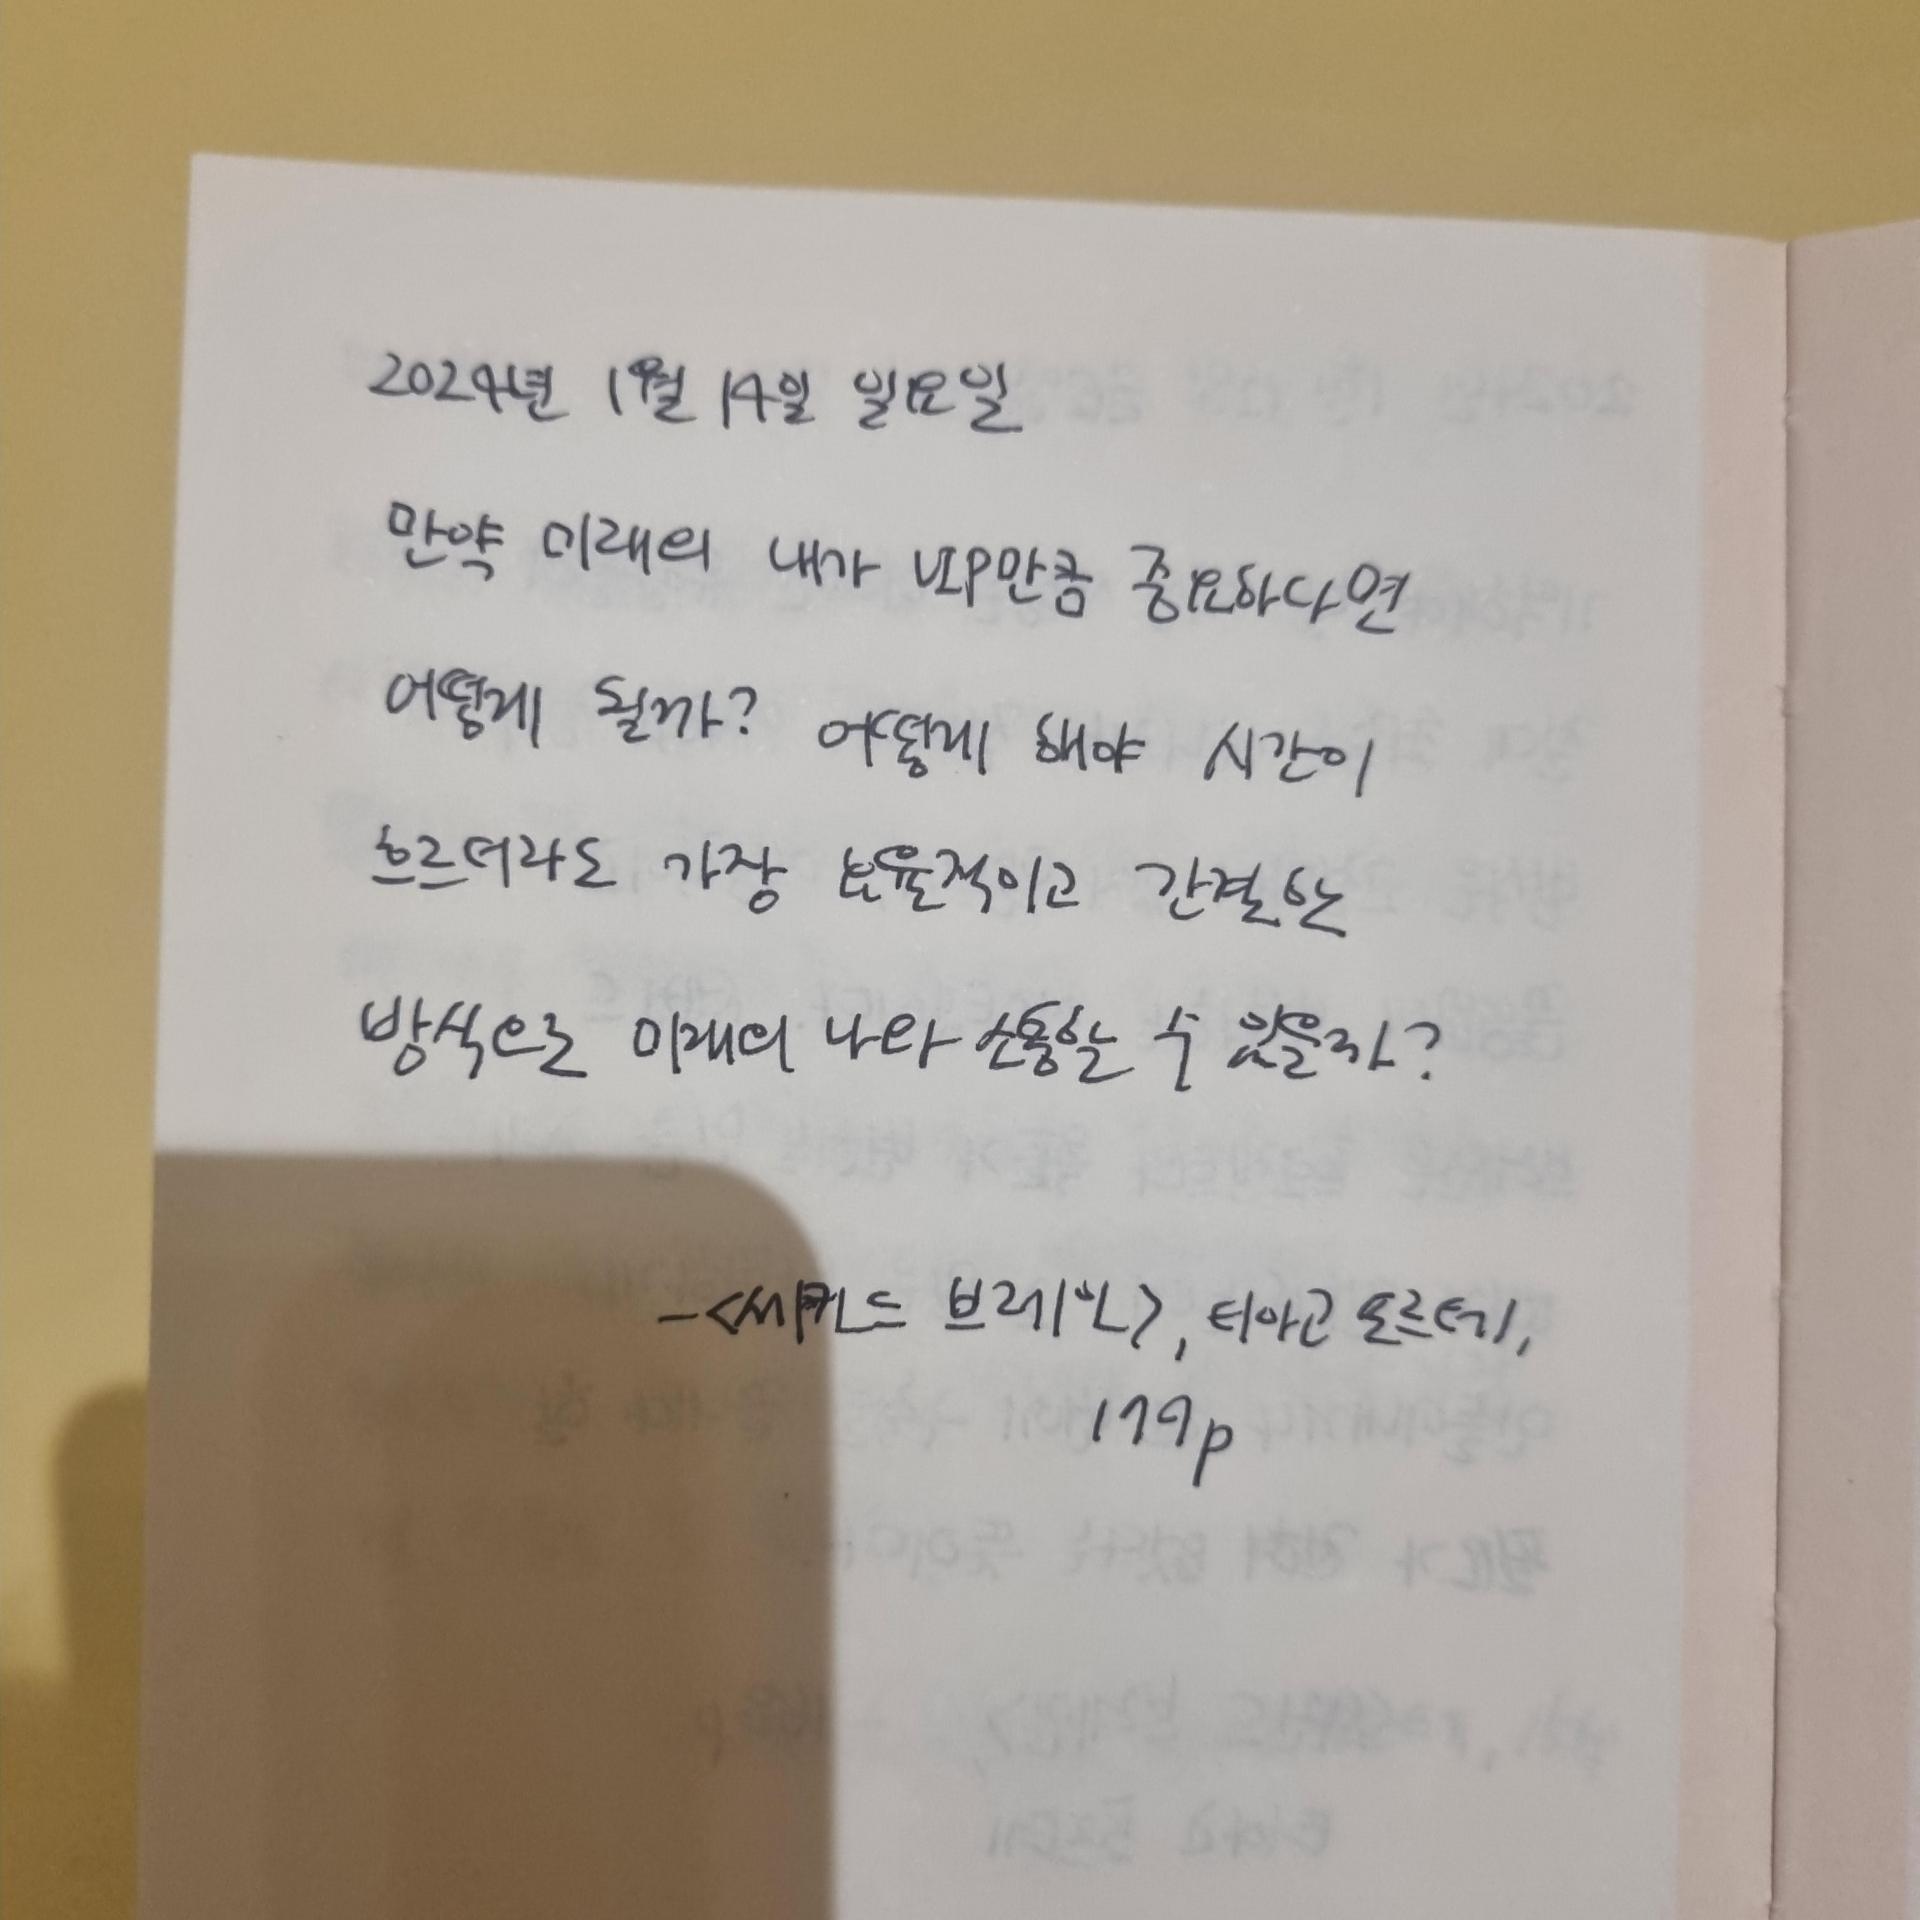 2024년 1월 14일 일요일
만약 미래의 내가 VIP만큼 중요하다면
어떻게 될까? 어떻게 해야 시간이
흐르더라도 가장 효율적이고 간결한
방식으로 미래의 나와 소통할 수 있을까?
-<세컨드 브레인>, 티아고 포르테,
179p